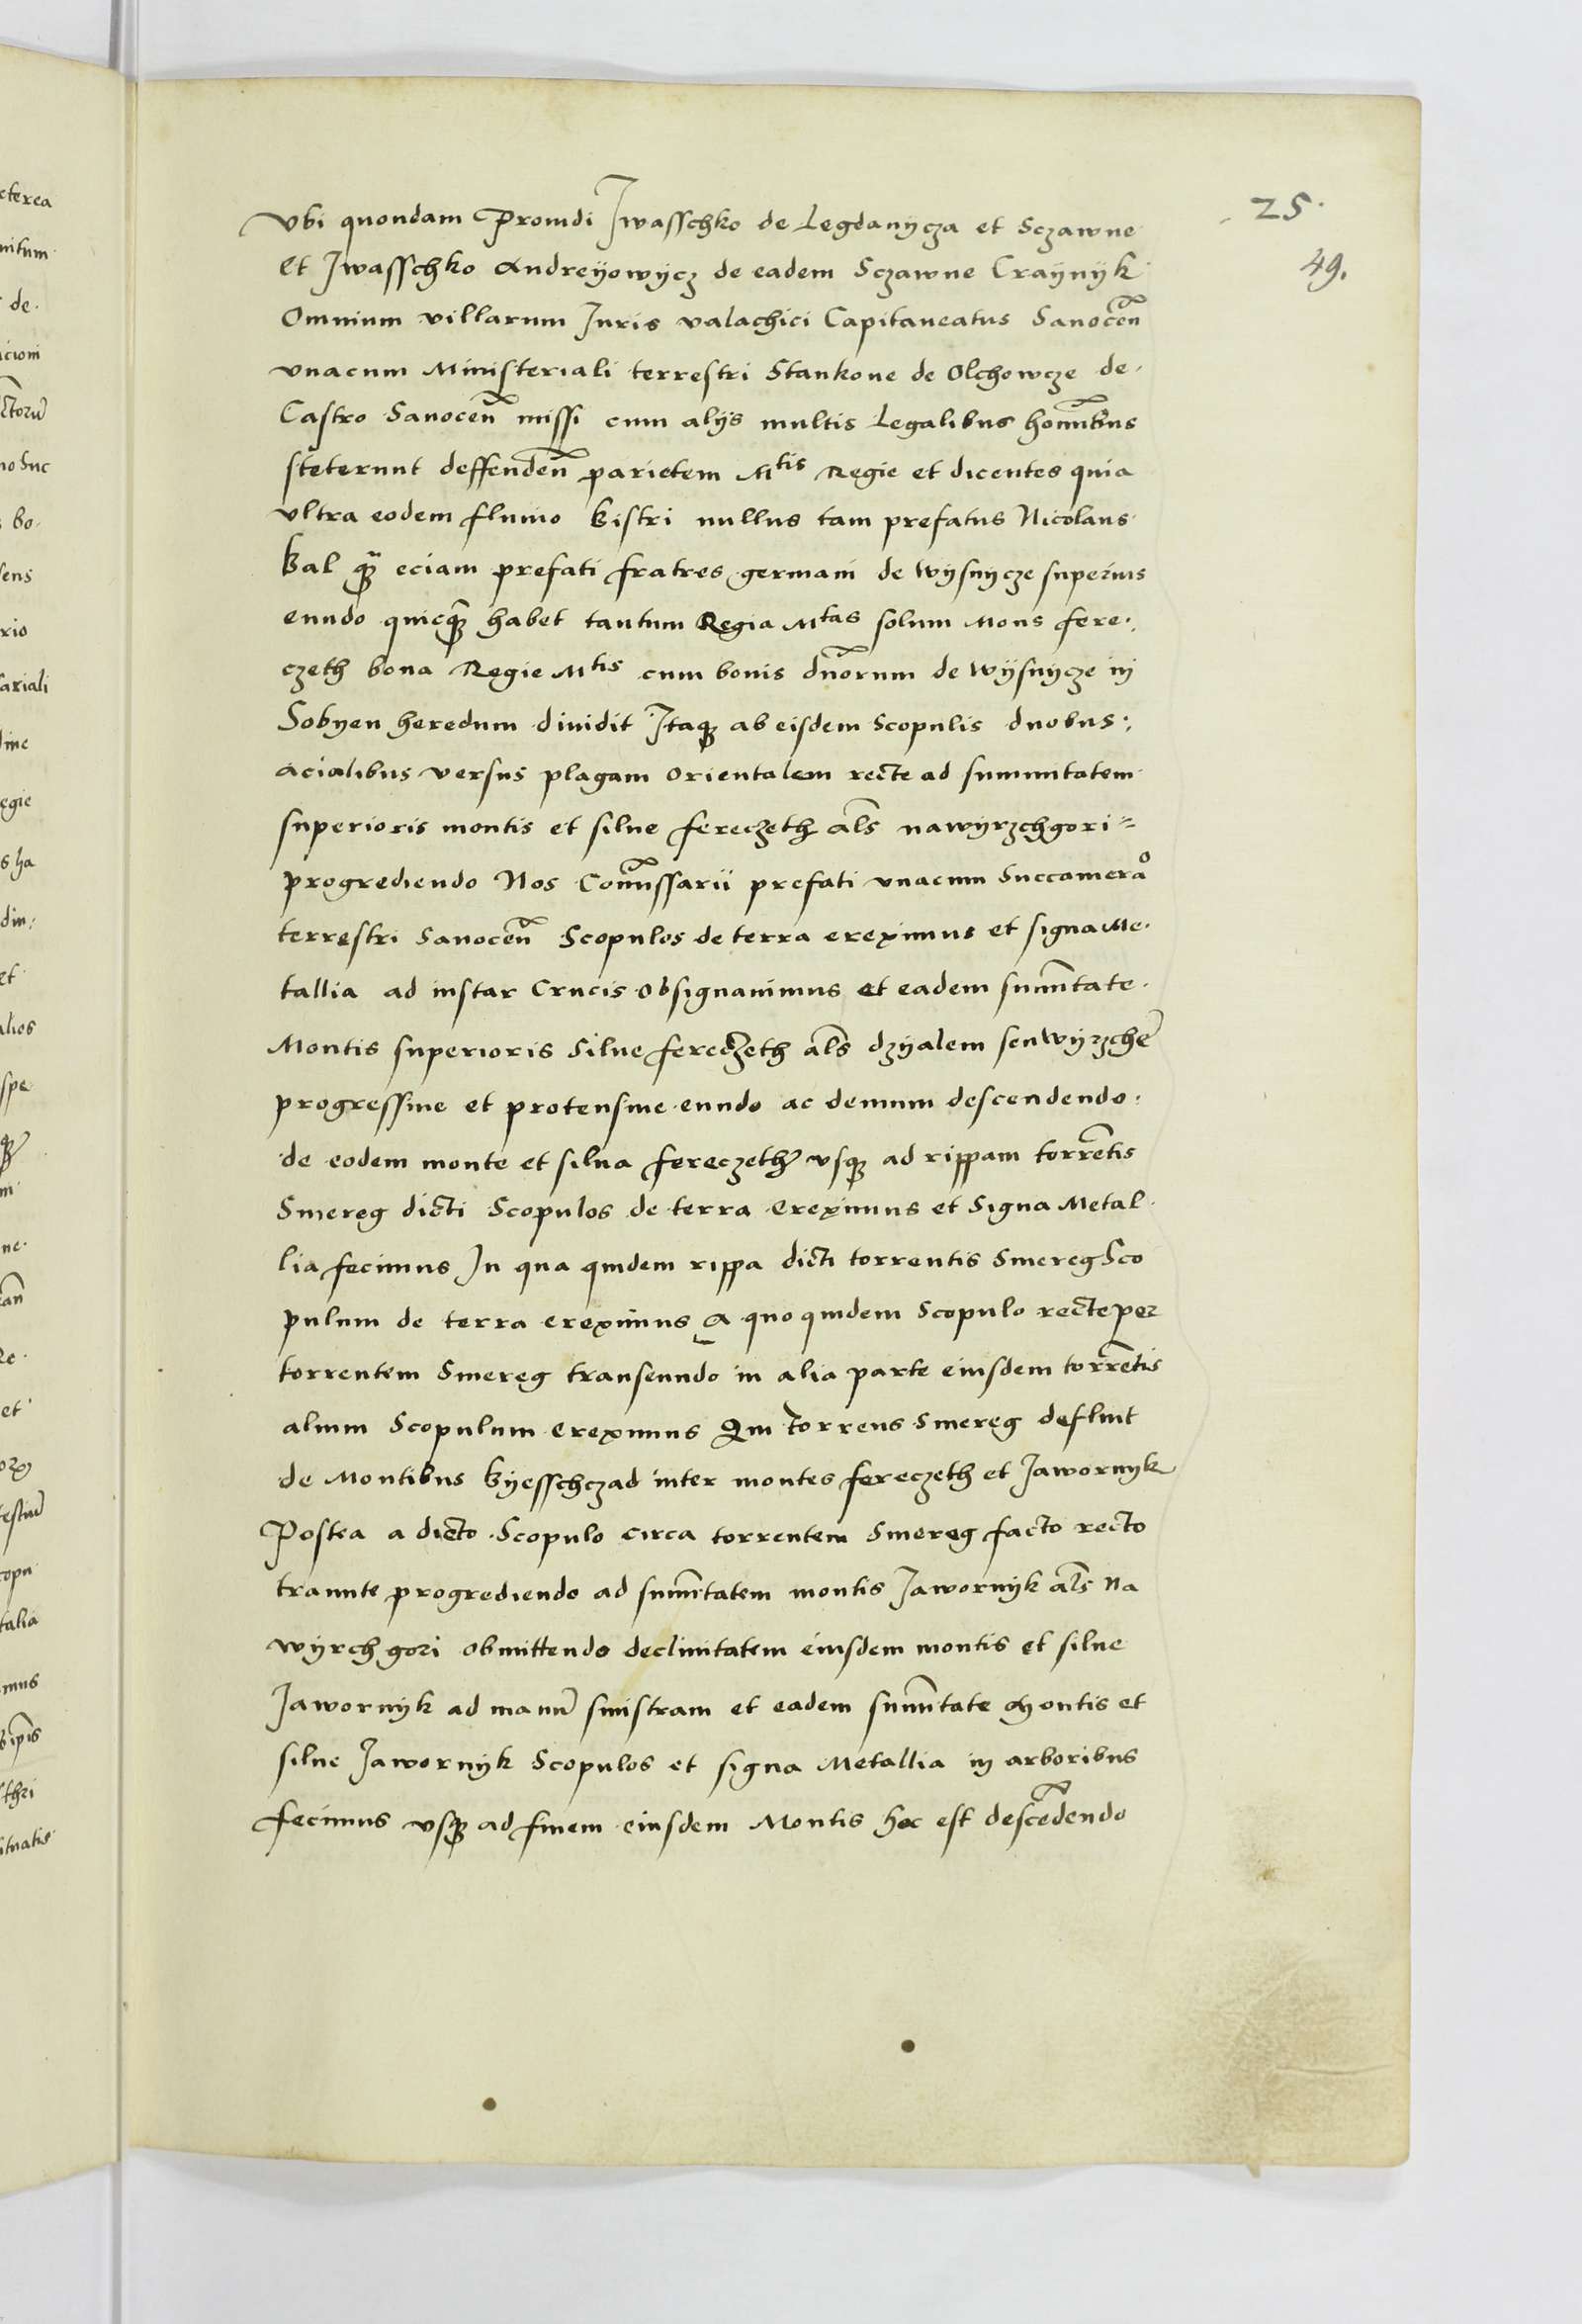 25.
49.
Vbi quondam Prouidi Iwasschko de Legdanycza et Sczawne
Et Iwasschko Andreÿowÿcz de eadem Sczawne Craÿnÿk
Omnium villarum Iuris valachici Capitaneatus Sanoceñ
vnacum Ministeriali terrestri Stankone de Olchowcze de
Castro Sanoceñ missi cum alijs multis Legalibus hominibus
steterunt deffendeñ parietem Mtis Regie et dicentes quia
vltra eodem fluuio Bistri nullus tam prefatus Nicolaus
Bal q̃ȝ eciam prefati fratres germani de Wÿsnycze superius
eundo quicq̃ȝ habet tantum Regia Mtas solum Mons fere:
czeth bona Regie Mtis cum bonis dñorum de Wÿsnycze in
Sobnen heredum diuidit Itaqȝ ab eisdem Scopulis duobus:
acialibus versus plagam Orientalem recte ad summitatem
superioris montis et silue fereczeth als̃ nawÿrzchgori=
progrediendo Nos Com̃issarii prefati vnacum Succamerao
terrestri Sanoceñ Scopulos de terra ereximus et signa Me
tallia ad instar Crucis obsignauimus et eadem sum̃itate
Montis superioris Silue fereczeth als̃ dzÿalem seu Wÿrzchem̃
progressiue et protensiue eundo ac demum descendendo
de eodem monte et silua fereczeth vsqȝ ad rippam torrẽtis
Smereg dicti Scopulos de terra Ereximus et Signa Metal
lia fecimus In qua quidem rippa dicti torrentis Smereg Sco
pulum de terra ereximus A quo quidem Scopulo recte per
torrentem Smereg transeundo in alia parte eiusdem torrẽtis
alium Scopulum ereximus Qui torrens Smereg defluit
de Montibus Byesschczad inter montes fereczeth et Jawornyk
Postea a dicto Scopulo circa torrentem Smereg facto recto
tramite progrediendo ad sum̃itatem montis Jawornÿk als̃ Na
wÿrch gori obmittendo decliuitatem eiusdem montis et silue
Jawornÿk ad manũ sinistram et eadem sum̃itate Montis et
silue Jawornÿk Scopulos et signa Metallia in arboribus
fecimus vsqȝ ad finem eiusdem Montis hoc est descẽdendo